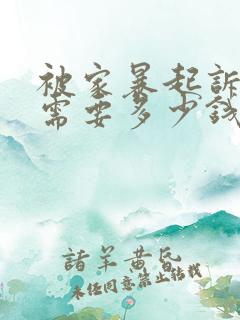 被家暴起訴
需要多少錢
諸羊黄昏
未经同意禁止转载